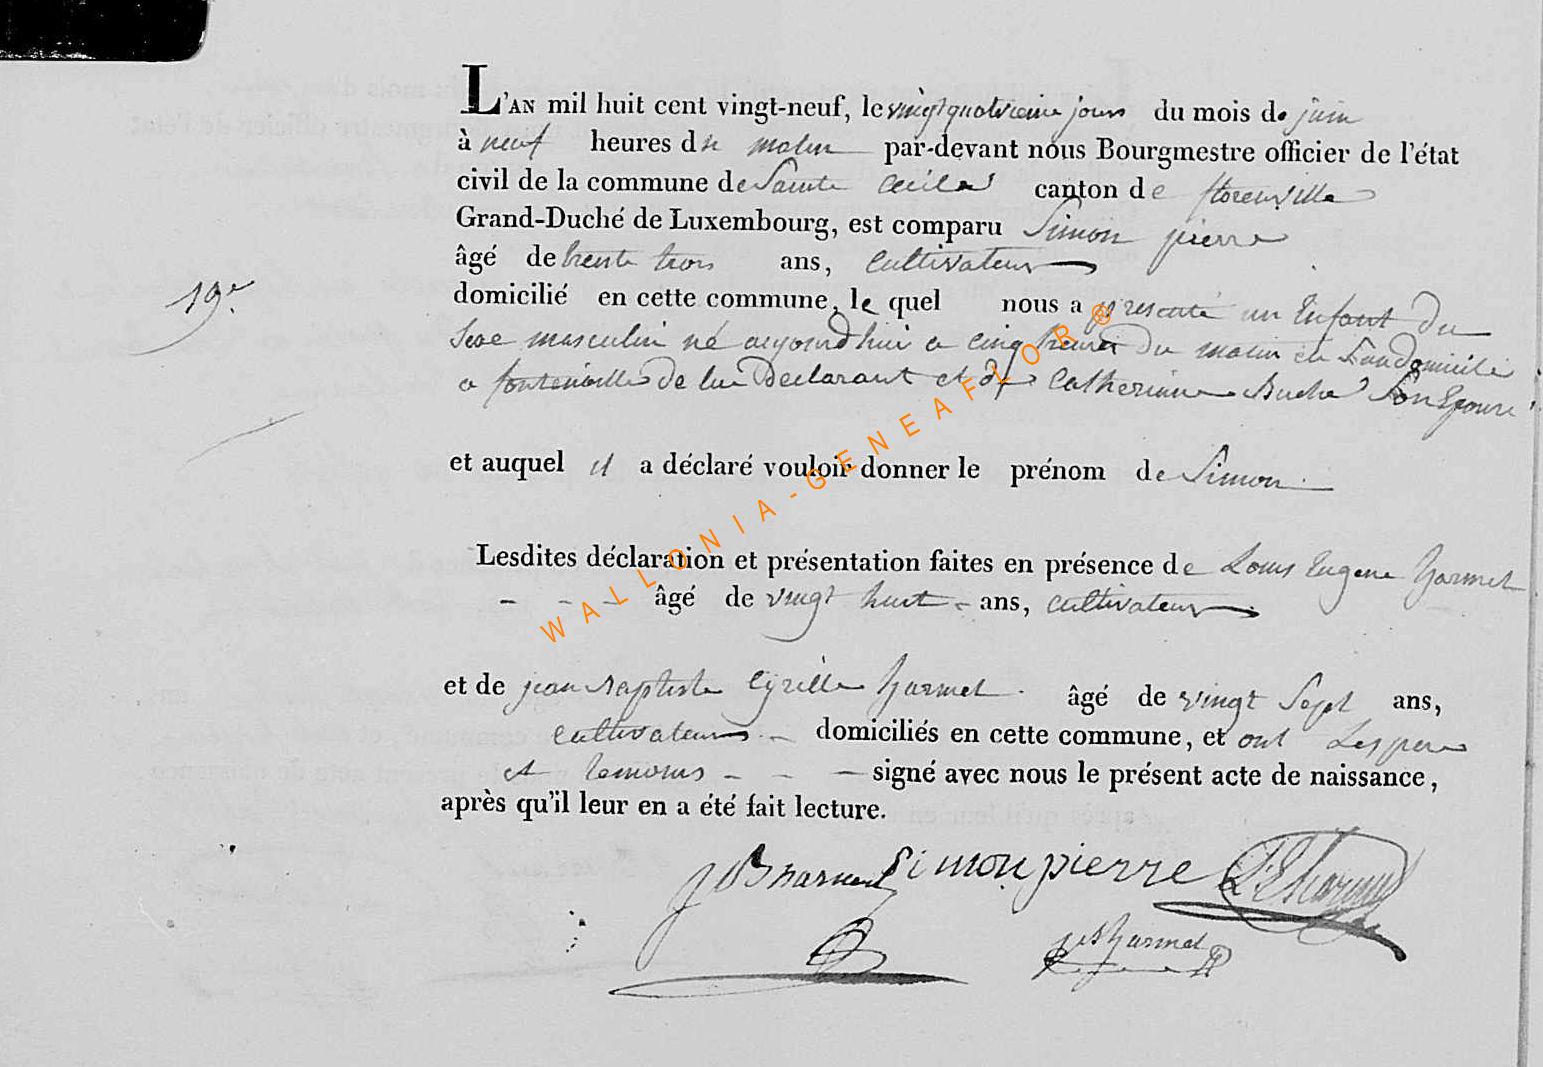 L'AN mil huit cent vingt-neuf, le vingt quatrieme jours du mois de juin
à neuf heures du matin par-devant nous Bourgmestre officier de l'état
civil de la commune de Sainte Cecile canton de florenville
Grand-Duché de Luxembourg, est comparu Simon pierre
âgé de trente trois ans, Cultivateur
19e.
domicilié en cette commune, le quel nous a presenté un Enfant Du
Sexe masculin né aujourd'hui a cinq heures Du matin en Son domicile
a fontenoille De lui Declarant et de Catherinne Son Epouse
et auquel il a déclaré vouloir donner le prénom de Simon
Lesdites déclaration et présentation faites en présence de Louis Eugene harmel
âgé de vingt huit ans, cultivateur
et de jean Baptiste Cyrille harmel âgé de vingt Sept ans,
cultivateurs domiciliés en cette commune, et ont Les pere
et temoins signé avec nous le présent acte de naissance,
après qu'il leur en a été fait lecture.
JB harmel Simon pierre L E harmel
harmel
WALLONIA-GENEAFLOR®